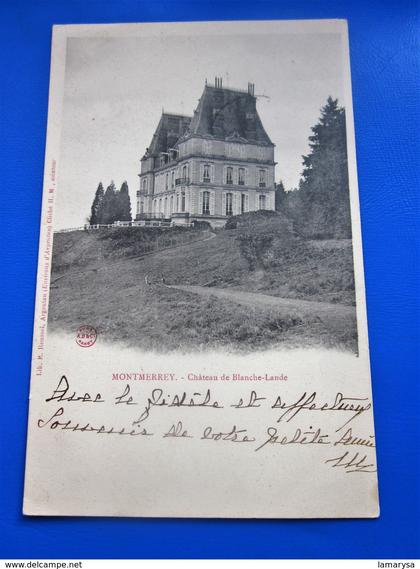 Lib. F. Rommel, Argentan (Environs d'Argentan) Cliché H. M., amateur
MONTMERREY. - Château de Blanche-Lande
Avec le fidèle et affectueux
Souvenir de votre petite amie
www.delcampe.net
lamarysa